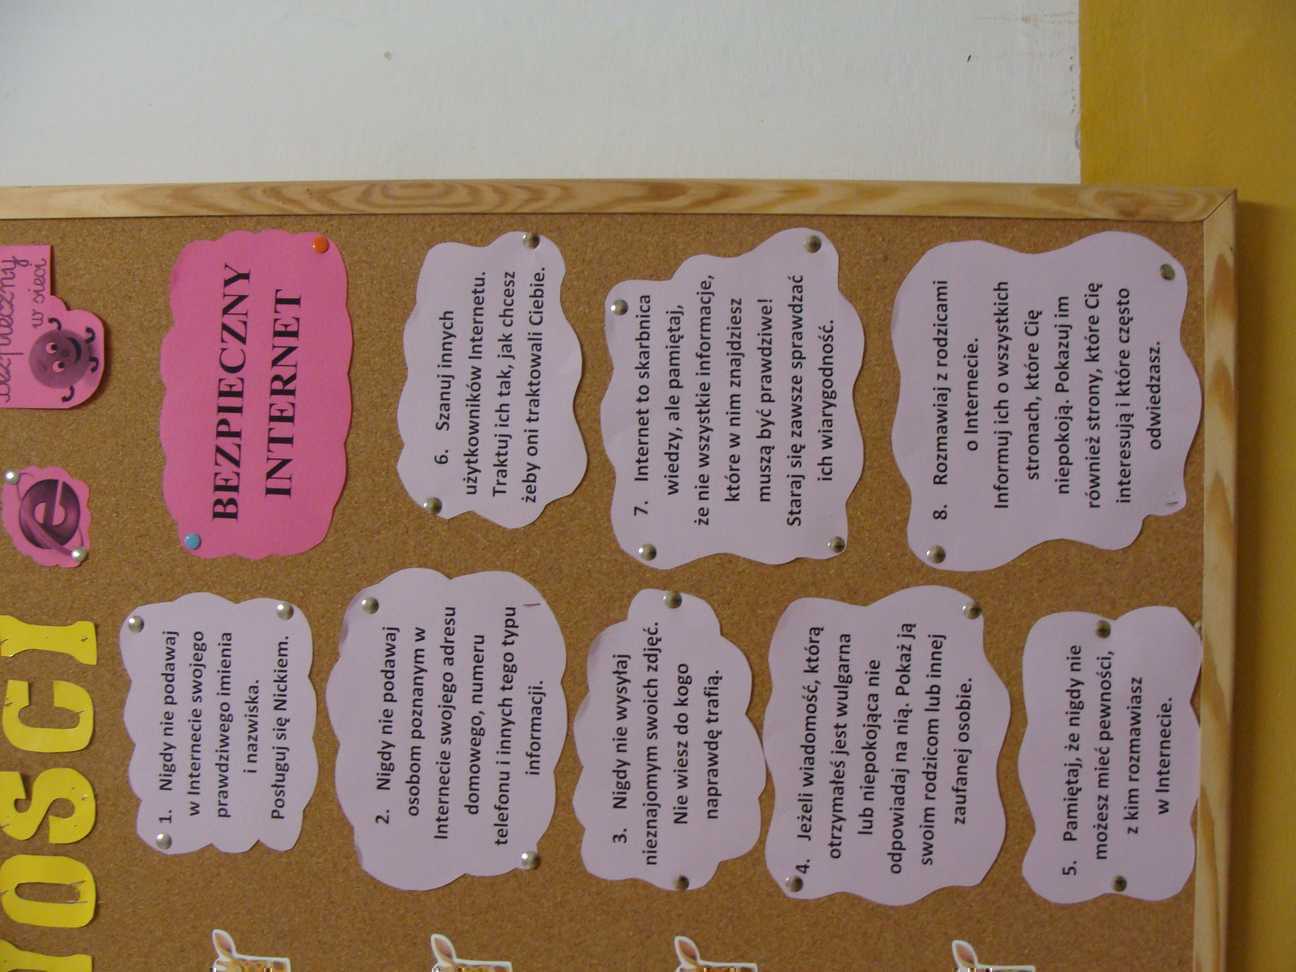 OŚCI
bezpieczny
w sieci
BEZPIECZNY
INTERNET
1. Nigdy nie podawaj
w Internecie swojego
prawdziwego imienia
i nazwiska.
Posługuj się Nickiem.
2. Nigdy nie podawaj
osobom poznanym w
Internecie swojego adresu
domowego, numeru
telefonu i innych tego typu
informacji.
3. Nigdy nie wysyłaj
nieznajomym swoich zdjęć.
Nie wiesz do kogo
naprawdę trafią.
4. Jeżeli wiadomość, którą
otrzymałeś jest wulgarna
lub niepokojąca nie
odpowiadaj na nią. Pokaż ją
swoim rodzicom lub innej
zaufanej osobie.
5. Pamiętaj, że nigdy nie
możesz mieć pewności,
z kim rozmawiasz
w Internecie.
6. Szanuj innych
użytkowników Internetu.
Traktuj ich tak, jak chcesz
żeby oni traktowali Ciebie.
7. Internet to skarbnica
wiedzy, ale pamiętaj,
że nie wszystkie informacje,
które w nim znajdziesz
muszą być prawdziwe!
Staraj się zawsze sprawdzać
ich wiarygodność.
8. Rozmawiaj z rodzicami
o Internecie.
Informuj ich o wszystkich
stronach, które Cię
niepokoją. Pokazuj im
również strony, które Cię
interesują i które często
odwiedzasz.